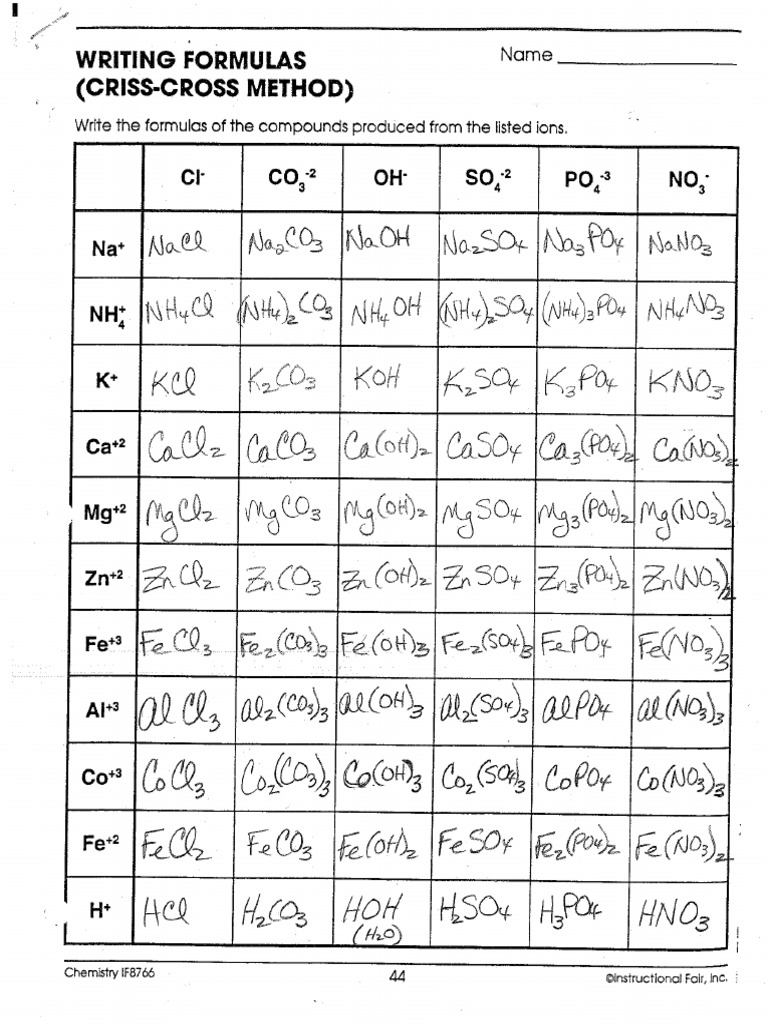 WRITING FORMULAS
Name
(CRISS-CROSS METHOD)
Write the formulas of the compounds produced from the listed ions.
Cl⁻ CO₃⁻² OH⁻ SO₄⁻² PO₄⁻³ NO₃⁻
Na⁺ NaCl Na₂CO₃ NaOH Na₂SO₄ Na₃PO₄ NaNO₃
NH₄⁺ NH₄Cl (NH₄)₂CO₃ NH₄OH (NH₄)₂SO₄ (NH₄)₃PO₄ NH₄NO₃
K⁺ KCl K₂CO₃ KOH K₂SO₄ K₃PO₄ KNO₃
Ca⁺² CaCl₂ CaCO₃ Ca(OH)₂ CaSO₄ Ca₃(PO₄)₂ Ca(NO₃)₂
Mg⁺² MgCl₂ MgCO₃ Mg(OH)₂ MgSO₄ Mg₃(PO₄)₂ Mg(NO₃)₂
Zn⁺² ZnCl₂ ZnCO₃ Zn(OH)₂ ZnSO₄ Zn₃(PO₄)₂ Zn(NO₃)₂
Fe⁺³ FeCl₃ Fe₂(CO₃)₃ Fe(OH)₃ Fe₂(SO₄)₃ FePO₄ Fe(NO₃)₃
Al⁺³ AlCl₃ Al₂(CO₃)₃ Al(OH)₃ Al₂(SO₄)₃ AlPO₄ Al(NO₃)₃
Co⁺³ CoCl₃ Co₂(CO₃)₃ Co(OH)₃ Co₂(SO₄)₃ CoPO₄ Co(NO₃)₃
Fe⁺² FeCl₂ FeCO₃ Fe(OH)₂ FeSO₄ Fe₂(PO₄)₂ Fe(NO₃)₂
H⁺ HCl H₂CO₃ HOH H₂SO₄ H₃PO₄ HNO₃
(H₂O)
Chemistry IF8766 44 ©Instructional Fair, Inc.